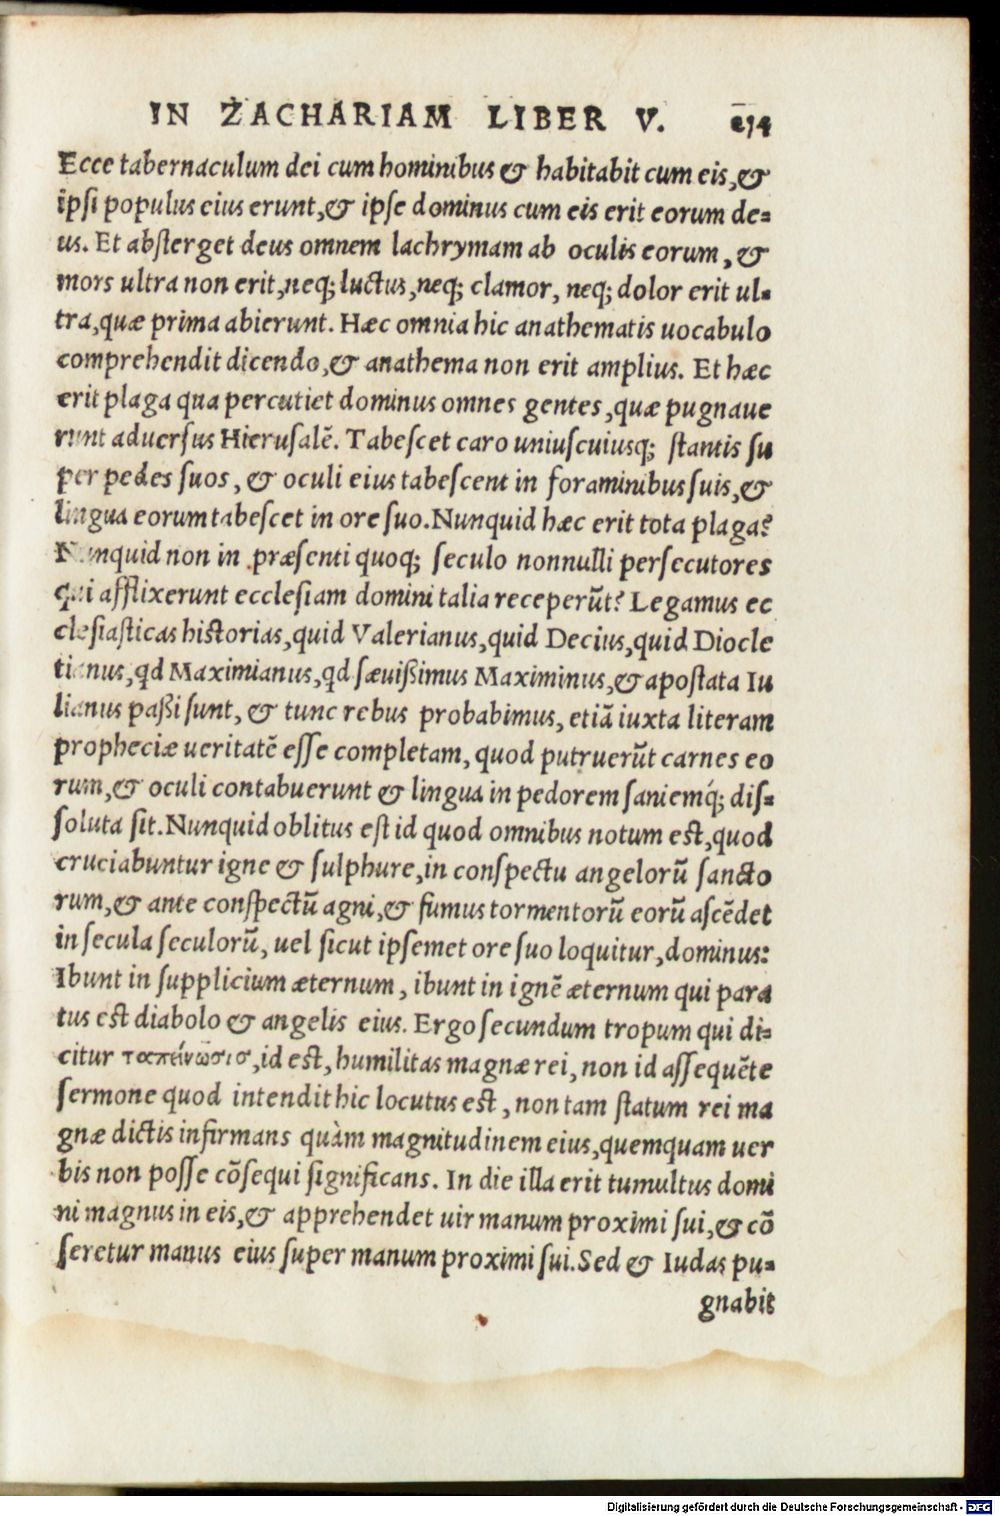 IN ZACHARIAM LIBER V. 254
Ecce tabernaculum dei cum hominibus & habitabit cum eis, &
ipsi populus eius erunt, & ipse dominus cum eis erit eorum de-
us. Et absterget deus omnem lachrymam ab oculis eorum, &
mors ultra non erit, neq; luctus, neq; clamor, neq; dolor erit ul-
tra, quæ prima abierunt. Hæc omnia hic anathematis uocabulo
comprehendit dicendo, & anathema non erit amplius. Et hæc
erit plaga qua percutiet dominus omnes gentes, quæ pugnaue
runt aduersus Hierusalē. Tabescet caro uniuscuiusq; stantis su
per pedes suos, & oculi eius tabescent in foraminibus suis, &
lingua eorum tabescet in ore suo. Nunquid hæc erit tota plaga?
Nunquid non in præsenti quoq; seculo nonnulli persecutores
qui afflixerunt ecclesiam domini talia receperūt? Legamus ec
clesiasticas historias, quid Valerianus, quid Decius, quid Diocle
tianus, qd Maximianus, qd sæuißimus Maximinus, & apostata Iu
lianus paßi sunt, & tunc rebus probabimus, etiā iuxta literam
propheciæ ueritatē esse completam, quod putruerūt carnes eo
rum, & oculi contabuerunt & lingua in pedorem saniemq́; dis-
soluta sit. Nunquid oblitus est id quod omnibus notum est, quod
cruciabuntur igne & sulphure, in conspectu angelorū sancto
rum, & ante conspectū agni, & fumus tormentorū eorū ascēdet
in secula seculorū, uel sicut ipsemet ore suo loquitur, dominus:
Ibunt in supplicium æternum, ibunt in ignē æternum qui para
tus est diabolo & angelis eius. Ergo secundum tropum qui di-
citur ταπείνωσισ, id est, humilitas magnæ rei, non id assequēte
sermone quod intendit hic locutus est, non tam statum rei ma
gnæ dictis infirmans quàm magnitudinem eius, quemquam uer
bis non posse cōsequi significans. In die illa erit tumultus domi
ni magnus in eis, & apprehendet uir manum proximi sui, & cō
seretur manus eius super manum proximi sui. Sed & Iudas pu-
gnabit
Digitalisierung gefördert durch die Deutsche Forschungsgemeinschaft - DFG